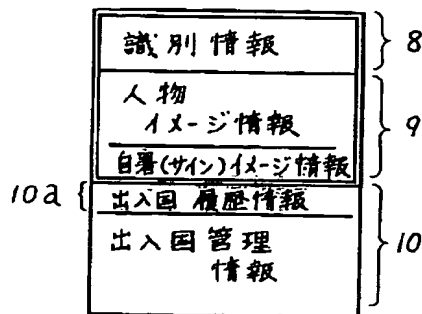 識別情報
8
人物
イメージ情報
9
自署(サイン)イメージ情報
10a
出入国履歴情報
出入国管理
情報
10